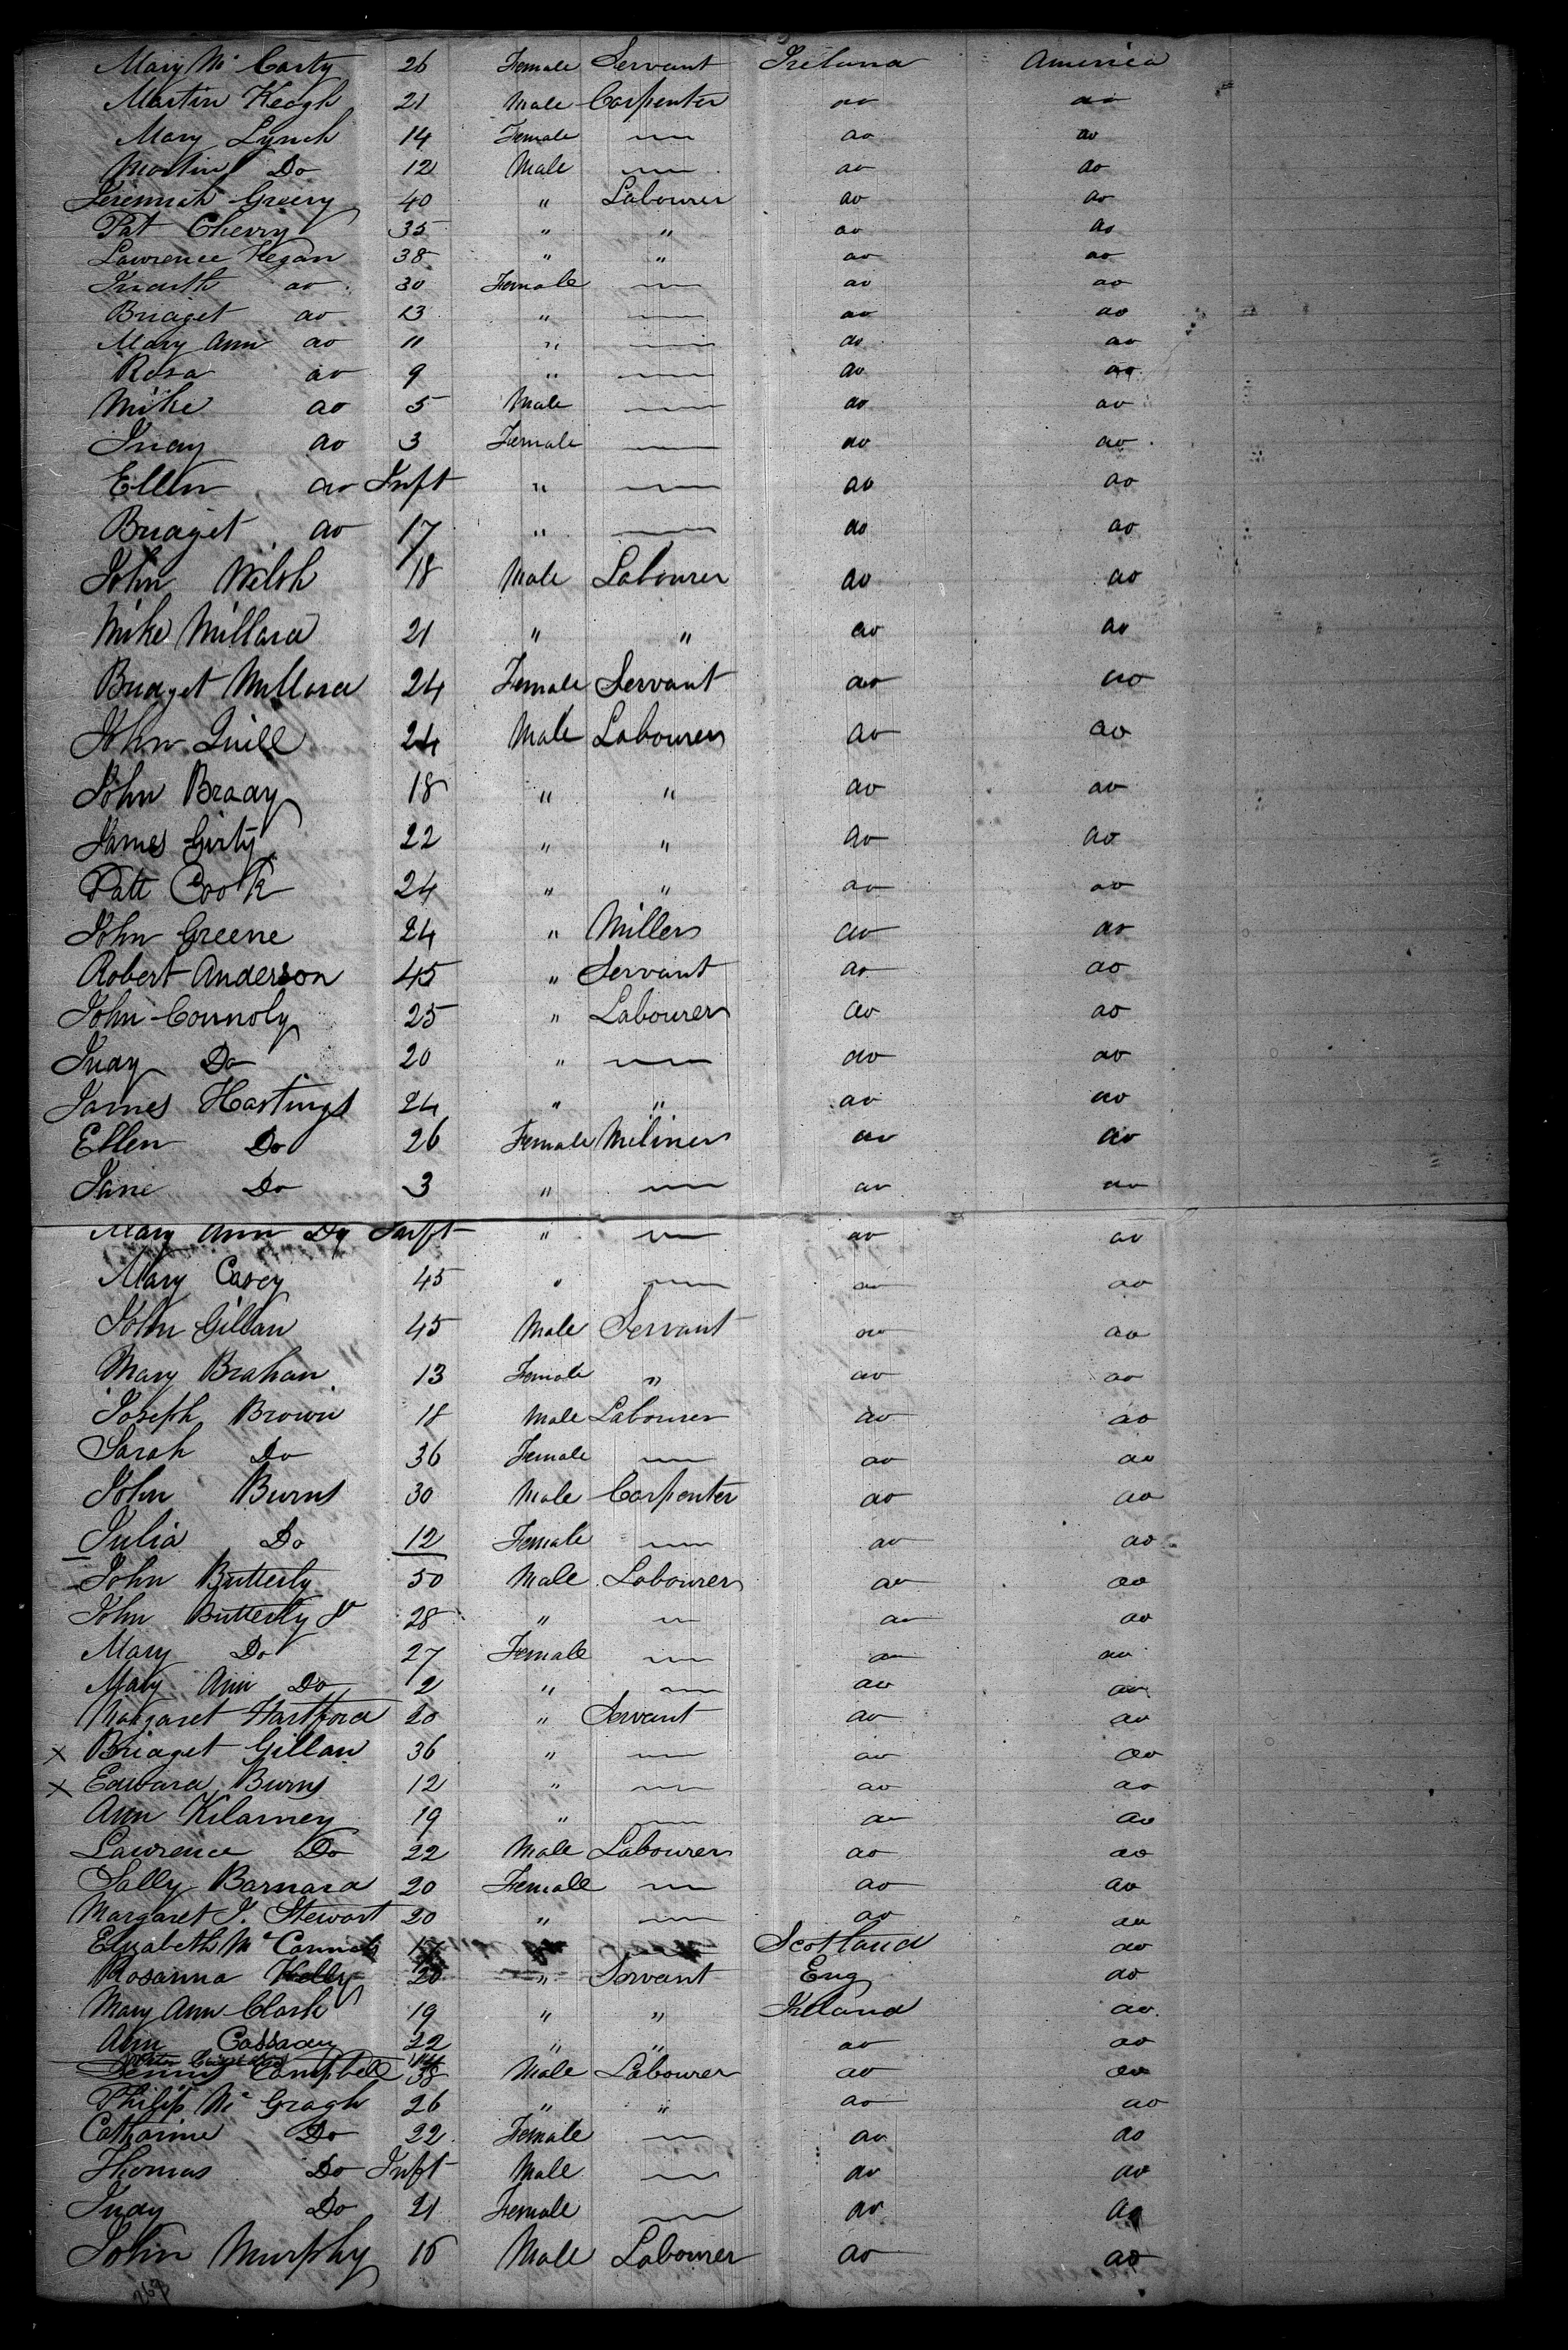 Mary Mc Carty 26 Female Servant Ireland America
Martin Keogh 21 Male Carpenter do do
Mary Lynch 14 Female — do do
Martin Do 12 Male — do do
Jeremiah Greery 40 " Labourer do do
Pat Cherry 35 " " do do
Lawrence Kegan 38 " " do do
do 30 Female — do do
Bridget do 13 " — do do
Mary Ann do 11 " — do do
Rosa do 9 " — do do
Mike do 5 Male — do do
Judy do 3 Female — do do
Ellen do Inft " — do do
Bridget do 17 " — do do
John Welsh 18 Male Labourer do do
Mike Millard 21 " " do do
Bridget Millard 24 Female Servant do do
John Quill 24 Male Labourer do do
John Brady 18 " " do do
James Girty 22 " " do do
Patt Cook 24 " " do do
John Greene 24 " Miller do do
Robert Anderson 45 " Servant do do
John Connoly 25 " Labourer do do
Judy Do 20 " — do do
James Hastings 24 " " do do
Ellen Do 26 Female Miliner do do
Jane Do 3 " — do do
Mary Ann Do Inft " — do do
Mary Casey 45 " — do do
John Gillan 45 Male Servant do do
Mary Brahan 13 Female " do do
Joseph Brown 18 Male Labourer do do
Sarah Do 36 Female — do do
John Burns 30 Male Carpenter do do
Julia Do 12 Female — do do
John Butterly 50 Male Labourer do do
John Butterly Jr 28 " — do do
Mary Do 27 Female — do do
Mary Ann Do 2 " — do do
Margaret Hartford 20 " Servant do do
x Bridget Gillan 36 " — do do
x Edward Burns 12 " — do do
Ann Kilarney 19 " — do do
Lawrence Do 22 Male Labourer do do
Sally Barnard 20 Female — do do
Margaret J. Stewart 20 " — do do
Elizabeth Mc — Scotland do
Rosanna Kelly 20 " Servant Eng do
Mary Ann Clark 19 " " Ireland do
Ann Cassady 22 " " do do
Dennis Campbell 38 Male Labourer do do
Philip Mc Gragh 26 " " do do
Catharine Do 22 Female — do do
Thomas Do Inft Male — do do
Judy Do 21 Female — do do
John Murphy 16 Male Labourer do do